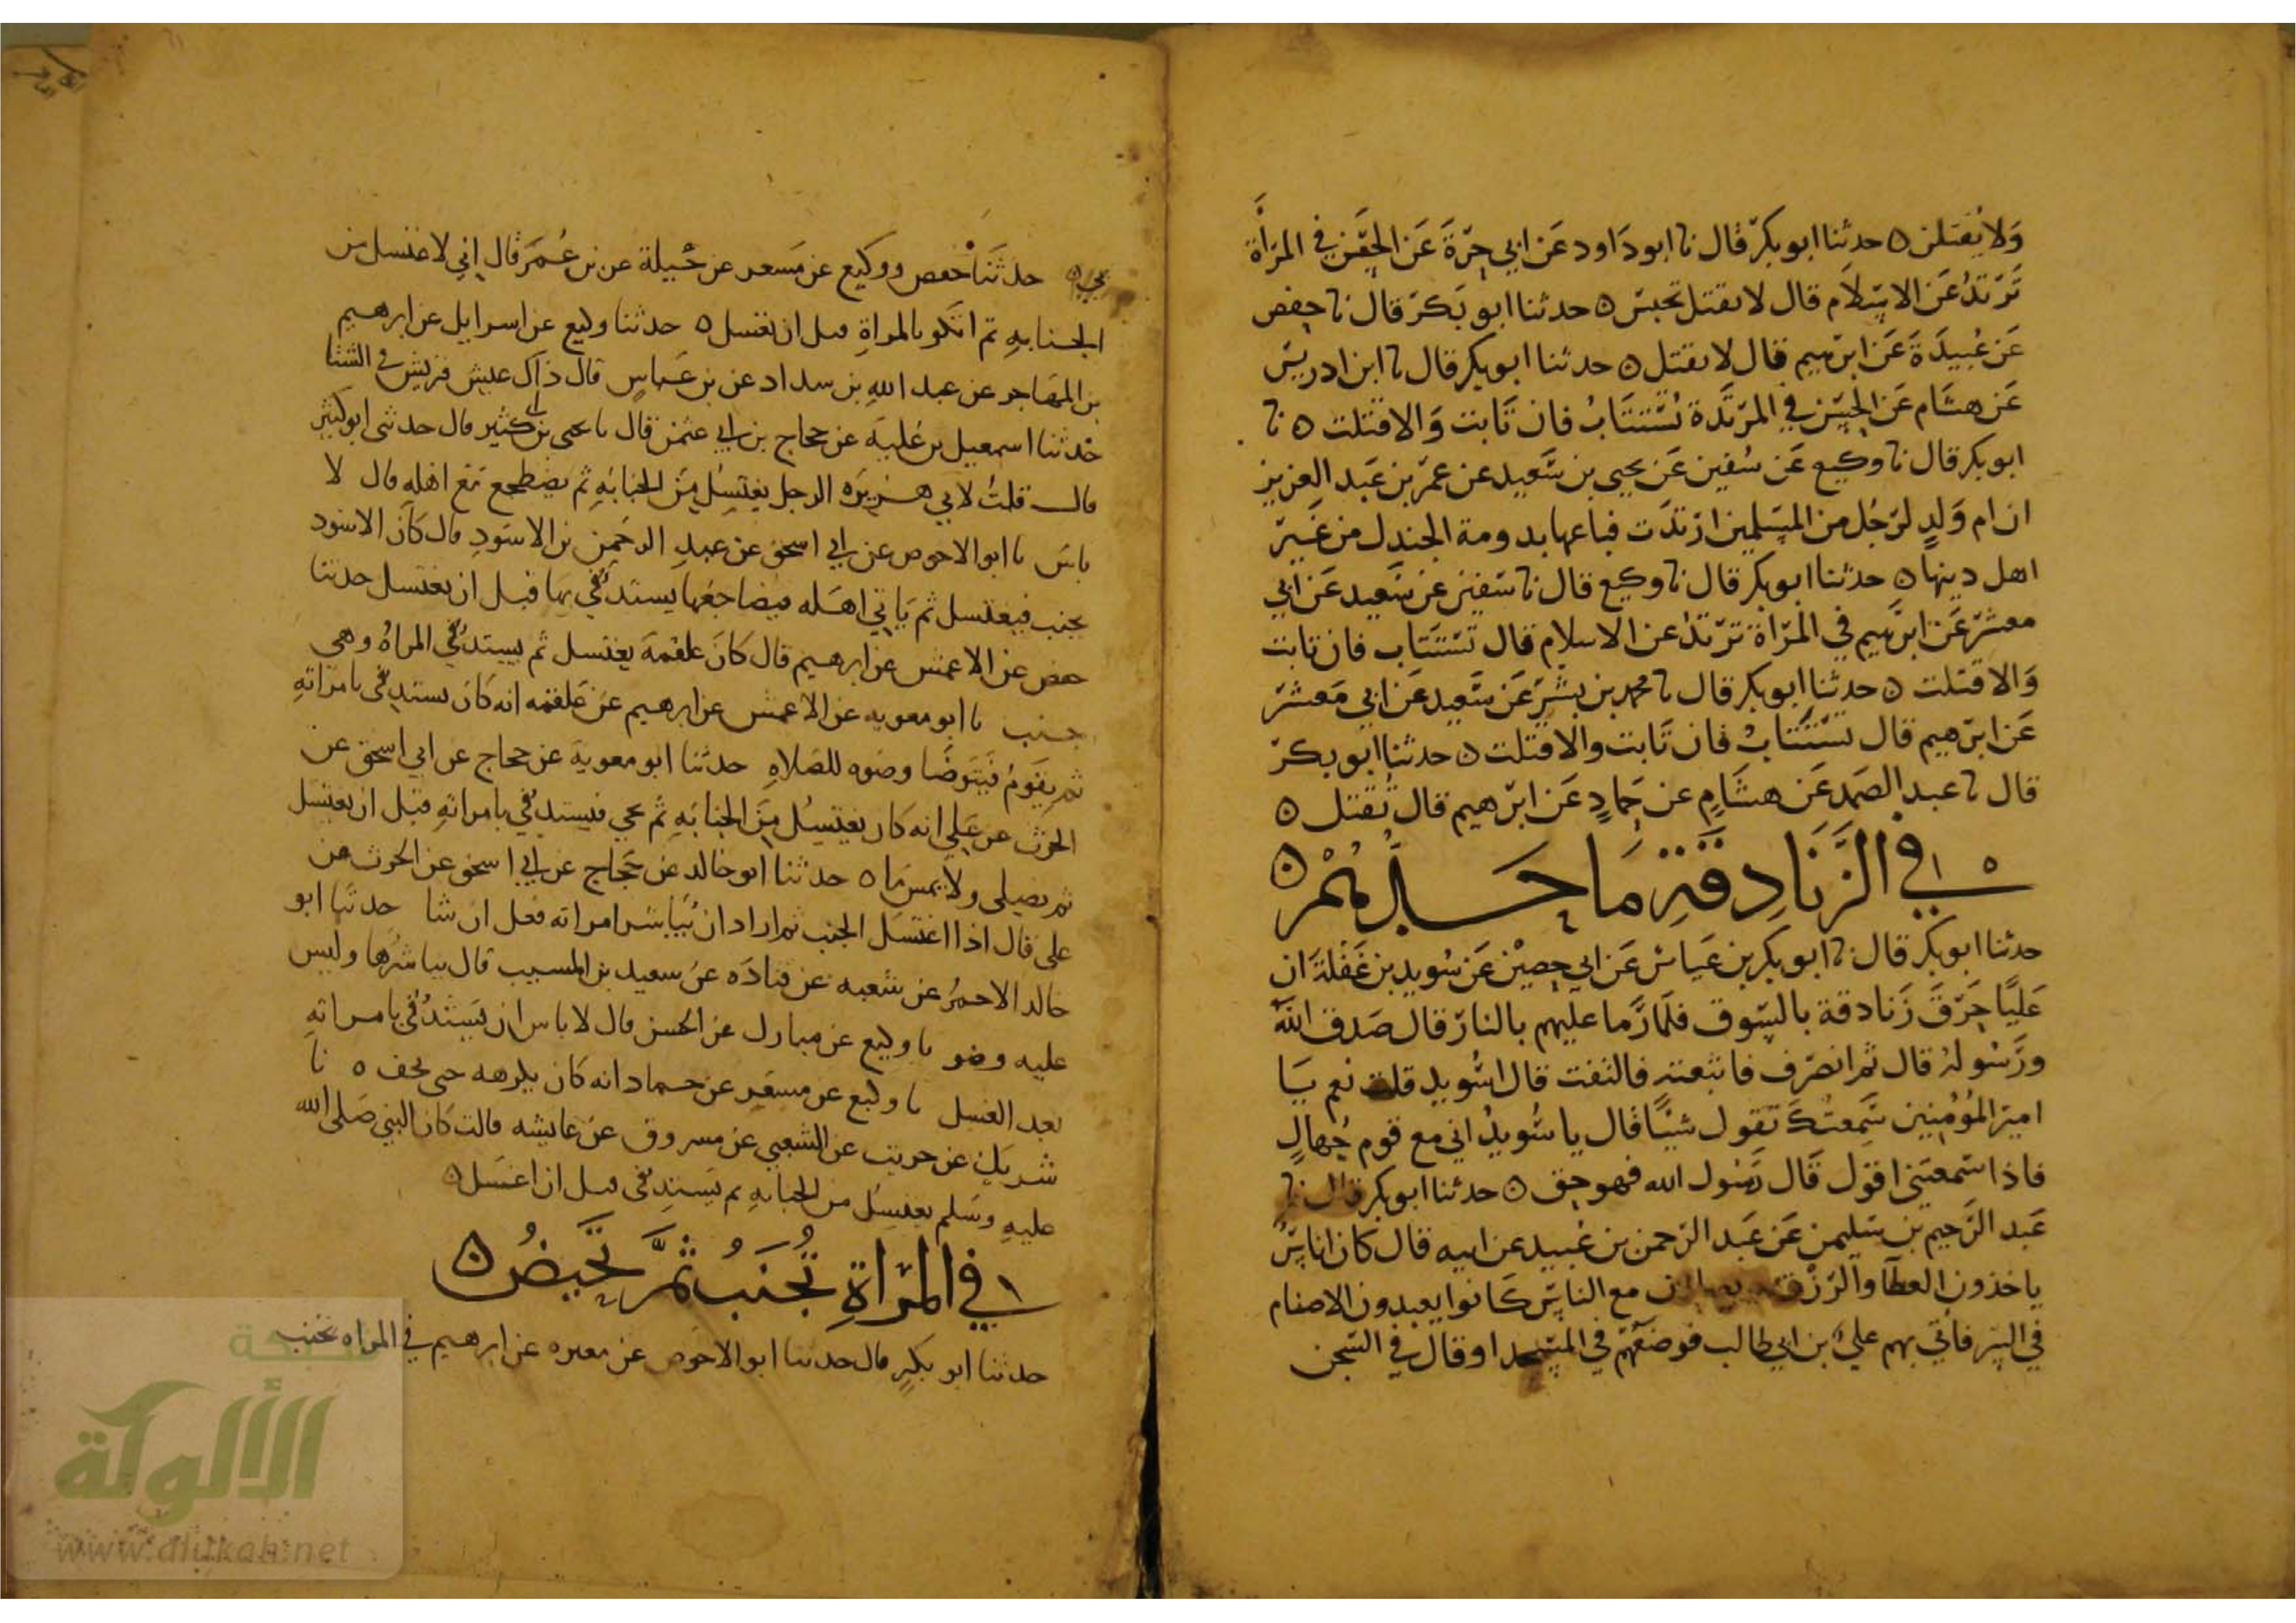 ولا يقتلن ٥ حدثنا ابو بكر قال نا ابو داود عن ابي حرة عن الحسن في المرأة
ترتد عن الاسلام قال لا تقتل تحبس ٥ حدثنا ابو بكر قال نا حفص
عن عبيدة عن ابرهيم قال لا تقتل ٥ حدثنا ابو بكر قال نا ابن ادريس
عن هشام عن الحسن في المرتدة تستتاب فان تابت والا قتلت ٥ نا
ابو بكر قال نا وكيع عن سفين عن يحيى بن سعيد عن عمر بن عبد العزيز
ان ام ولد لرجل من المسلمين ارتدت فباعها بدومة الجندل من غير
اهل دينها ٥ حدثنا ابو بكر قال نا وكيع قال نا سفين عن سعيد عن ابي
معشر عن ابرهيم في المرأة ترتد عن الاسلام قال تستتاب فان تابت
والا قتلت ٥ حدثنا ابو بكر قال نا محمد بن بشر عن سعيد عن ابي معشر
عن ابرهيم قال تستتاب فان تابت والا قتلت ٥ حدثنا ابو بكر
قال نا عبد الصمد عن هشام عن حماد عن ابرهيم قال تقتل ٥
في الزنادقة ما حدهم ٥
حدثنا ابو بكر قال نا ابو بكر بن عياش عن ابي حصين عن سويد بن غفلة ان
عليا حرق زنادقة بالسوق فلما رما عليهم بالنار قال صدق الله
ورسوله قال ثم انصرف فاتبعته فالتفت قال اسويد قلت نعم يا
امير المؤمنين سمعتك تقول شيئا فقال يا سويد اني مع قوم جهال
فاذا سمعتني اقول قال رسول الله فهو حق ٥ حدثنا ابو بكر قال نا
عبد الرحيم بن سليمن عن عبد الرحمن بن عبيد عن ابيه قال كان اناس
ياخذون العطا والرزق مع الناس كانوا يعبدون الاصنام
في السر فاتي بهم علي بن ابي طالب فوضعهم في المسجد او قال في السجن
حدثنا حفص ووكيع عن مسعر عن جبلة عن بن عمر قال اني لاغتسل من
الجنابة ثم اتكو بالمراة قبل ان تغتسل ٥ حدثنا وكيع عن اسرايل عن ابرهيم
بن المهاجر عن عبد الله بن سداد عن بن عباس قال ذاك عيش قريش في الشتا
حدثنا اسمعيل بن علية عن حجاج بن ابي عثمن قال نا يحيى بن كثير قال حدثني ابو كثير
قال قلت لابي هريرة الرجل يغتسل من الجنابة ثم يضطجع مع اهله قال لا
باس نا ابو الاحوص عن ابي اسحق عن عبد الرحمن بن الاسود قال كان الاسود
يجنب فيغتسل ثم ياتي اهله فيضاجعها يستدفي بها قبل ان تغتسل حدثنا
حفص عن الاعمش عن ابرهيم قال كان علقمة يغتسل ثم يستدفي المراة وهي
جنب نا ابو معوية عن الاعمش عن ابرهيم عن علقمه انه كان يستدفي بامراته
ثم يقوم فيتوضا وضوه للصلاه حدثنا ابو معوية عن حجاج عن ابي اسحق عن
الحرث عن علي انه كان يغتسل من الجنابة ثم يجي فيستدفي بامراته قبل ان تغتسل
ثم يصلي ولا يمس ما ٥ حدثنا ابو خالد عن حجاج عن ابي اسحق عن الحرث عن
علي قال اذا اغتسل الجنب ثم اراد ان يباشر امراته فعل ان شا حدثنا ابو
خالد الاحمر عن شعبه عن قتادة عن سعيد بن المسيب قال يباشرها وليس
عليه وضو نا وكيع عن مبارك عن الحسن قال لا باس ان يستدفي بامراته
بعد الغسل نا وكيع عن مسعر عن حماد انه كان يكرهه حتى يجف ٥ نا
شريك عن حريث عن الشعبي عن مسروق عن عايشه قالت كان النبي صلى الله
عليه وسلم يغتسل من الجنابة ثم يستدفي قبل ان اغتسل ٥
في المراة تجنب ثم تحيض ٥
حدثنا ابو بكر قال حدثنا ابو الاحوص عن مغيره عن ابرهيم في المراه تجنب
شبكة
الألوكة
www.alukah.net